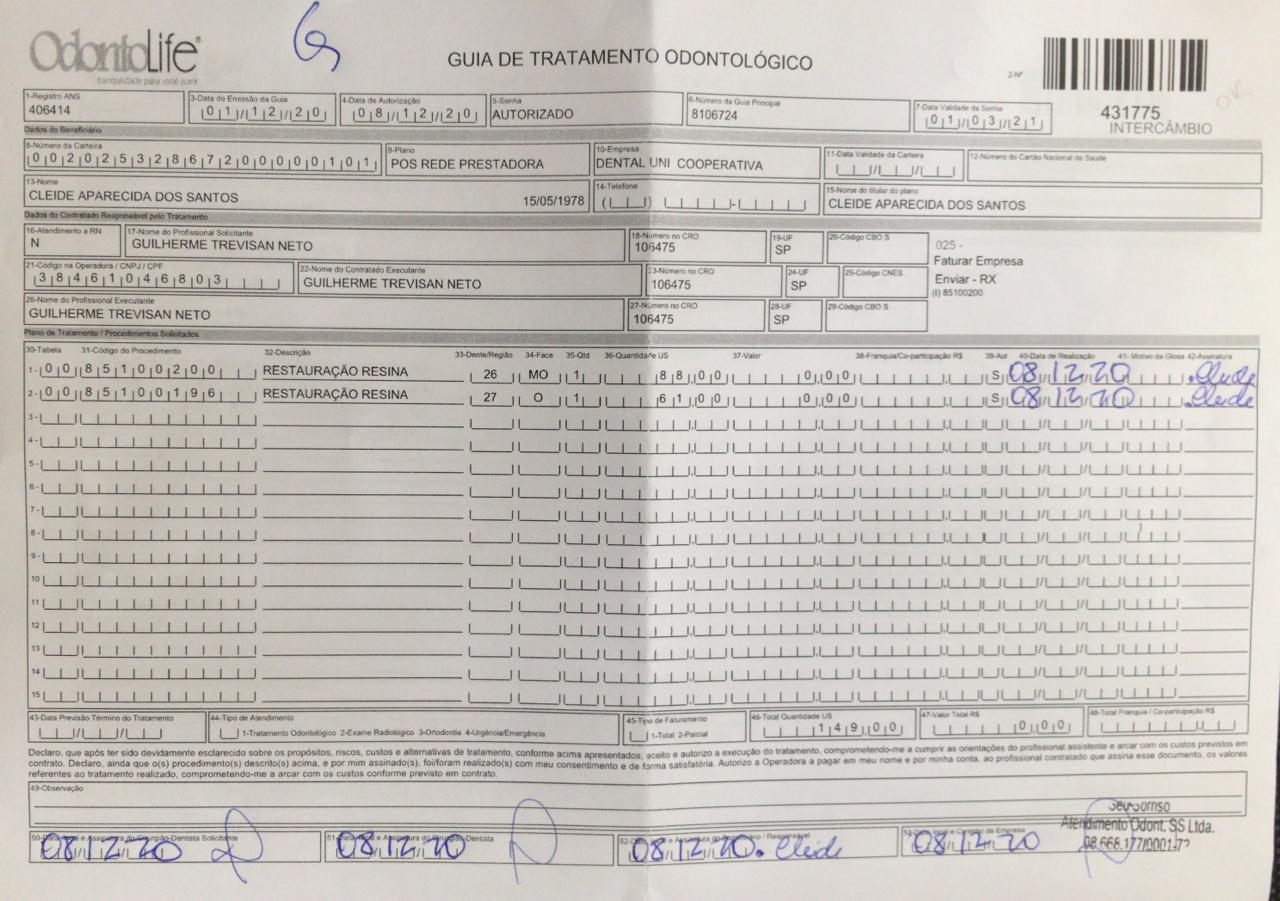 OdontoLife
tranquilidade para você sorrir
GUIA DE TRATAMENTO ODONTOLÓGICO
2-Nº
431775
INTERCÂMBIO
1-Registro ANS
406414
3-Data de Emissão da Guia
01/12/20
4-Data de Autorização
08/12/20
5-Senha
AUTORIZADO
6-Número da Guia Principal
8106724
7-Data Validade da Senha
01/03/21
Dados do Beneficiário
8-Número da Carteira
00202532867200000101
9-Plano
POS REDE PRESTADORA
10-Empresa
DENTAL UNI COOPERATIVA
11-Data Validade da Carteira
12-Número do Cartão Nacional de Saúde
13-Nome
CLEIDE APARECIDA DOS SANTOS 15/05/1978
14-Telefone
15-Nome do titular do plano
CLEIDE APARECIDA DOS SANTOS
Dados do Contratado Responsável pelo Tratamento
16-Atendimento a RN
N
17-Nome do Profissional Solicitante
GUILHERME TREVISAN NETO
18-Número no CRO
106475
19-UF
SP
20-Código CBO S
025 -
Faturar Empresa
Enviar - RX
(I) 85100200
21-Código na Operadora / CNPJ / CPF
38461046803
22-Nome do Contratado Executante
GUILHERME TREVISAN NETO
23-Número no CRO
106475
24-UF
SP
25-Código CNES
26-Nome do Profissional Executante
GUILHERME TREVISAN NETO
27-Número no CRO
106475
28-UF
SP
29-Código CBO S
Plano de Tratamento / Procedimentos Solicitados
30-Tabela 31-Código do Procedimento 32-Descrição 33-Dente/Região 34-Face 35-Qtd 36-Quantidade US 37-Valor 38-Franquia/Co-participação R$ 39-Aut 40-Data de Realização 41- Motivo da Glosa 42-Assinatura
1- 00 85100200 RESTAURAÇÃO RESINA 26 MO 1 88,00 0,00 S 08/12/20 Cleide
2- 00 85100196 RESTAURAÇÃO RESINA 27 O 1 61,00 0,00 S 08/12/20 Cleide
3-
4-
5-
6-
7-
8-
9-
10
11
12
13
14
15
43-Data Previsão Término do Tratamento
44-Tipo de Atendimento
1-Tratamento Odontológico 2-Exame Radiológico 3-Ortodontia 4-Urgência/Emergência
45-Tipo de Faturamento
1-Total 2-Parcial
46-Total Quantidade US
149,00
47-Valor Total R$
0,00
48-Total Franquia / Co-participação R$
Declaro, que após ter sido devidamente esclarecido sobre os propósitos, riscos, custos e alternativas de tratamento, conforme acima apresentados, aceito e autorizo a execução do tratamento, comprometendo-me a cumprir as orientações do profissional assistente e arcar com os custos previstos em
contrato. Declaro, ainda que o(s) procedimento(s) descrito(s) acima, e por mim assinado(s), foi/foram realizado(s) com meu consentimento e de forma satisfatória. Autorizo a Operadora a pagar em meu nome e por minha conta, ao profissional contratado que assina esse documento, os valores
referentes ao tratamento realizado, comprometendo-me a arcar com os custos conforme previsto em contrato.
49-Observação
Seu sorriso
Atendimento Odont. SS Ltda.
08.668.177/0001-72
08/12/20
08/12/20
08/12/20. Cleide
08/12/20